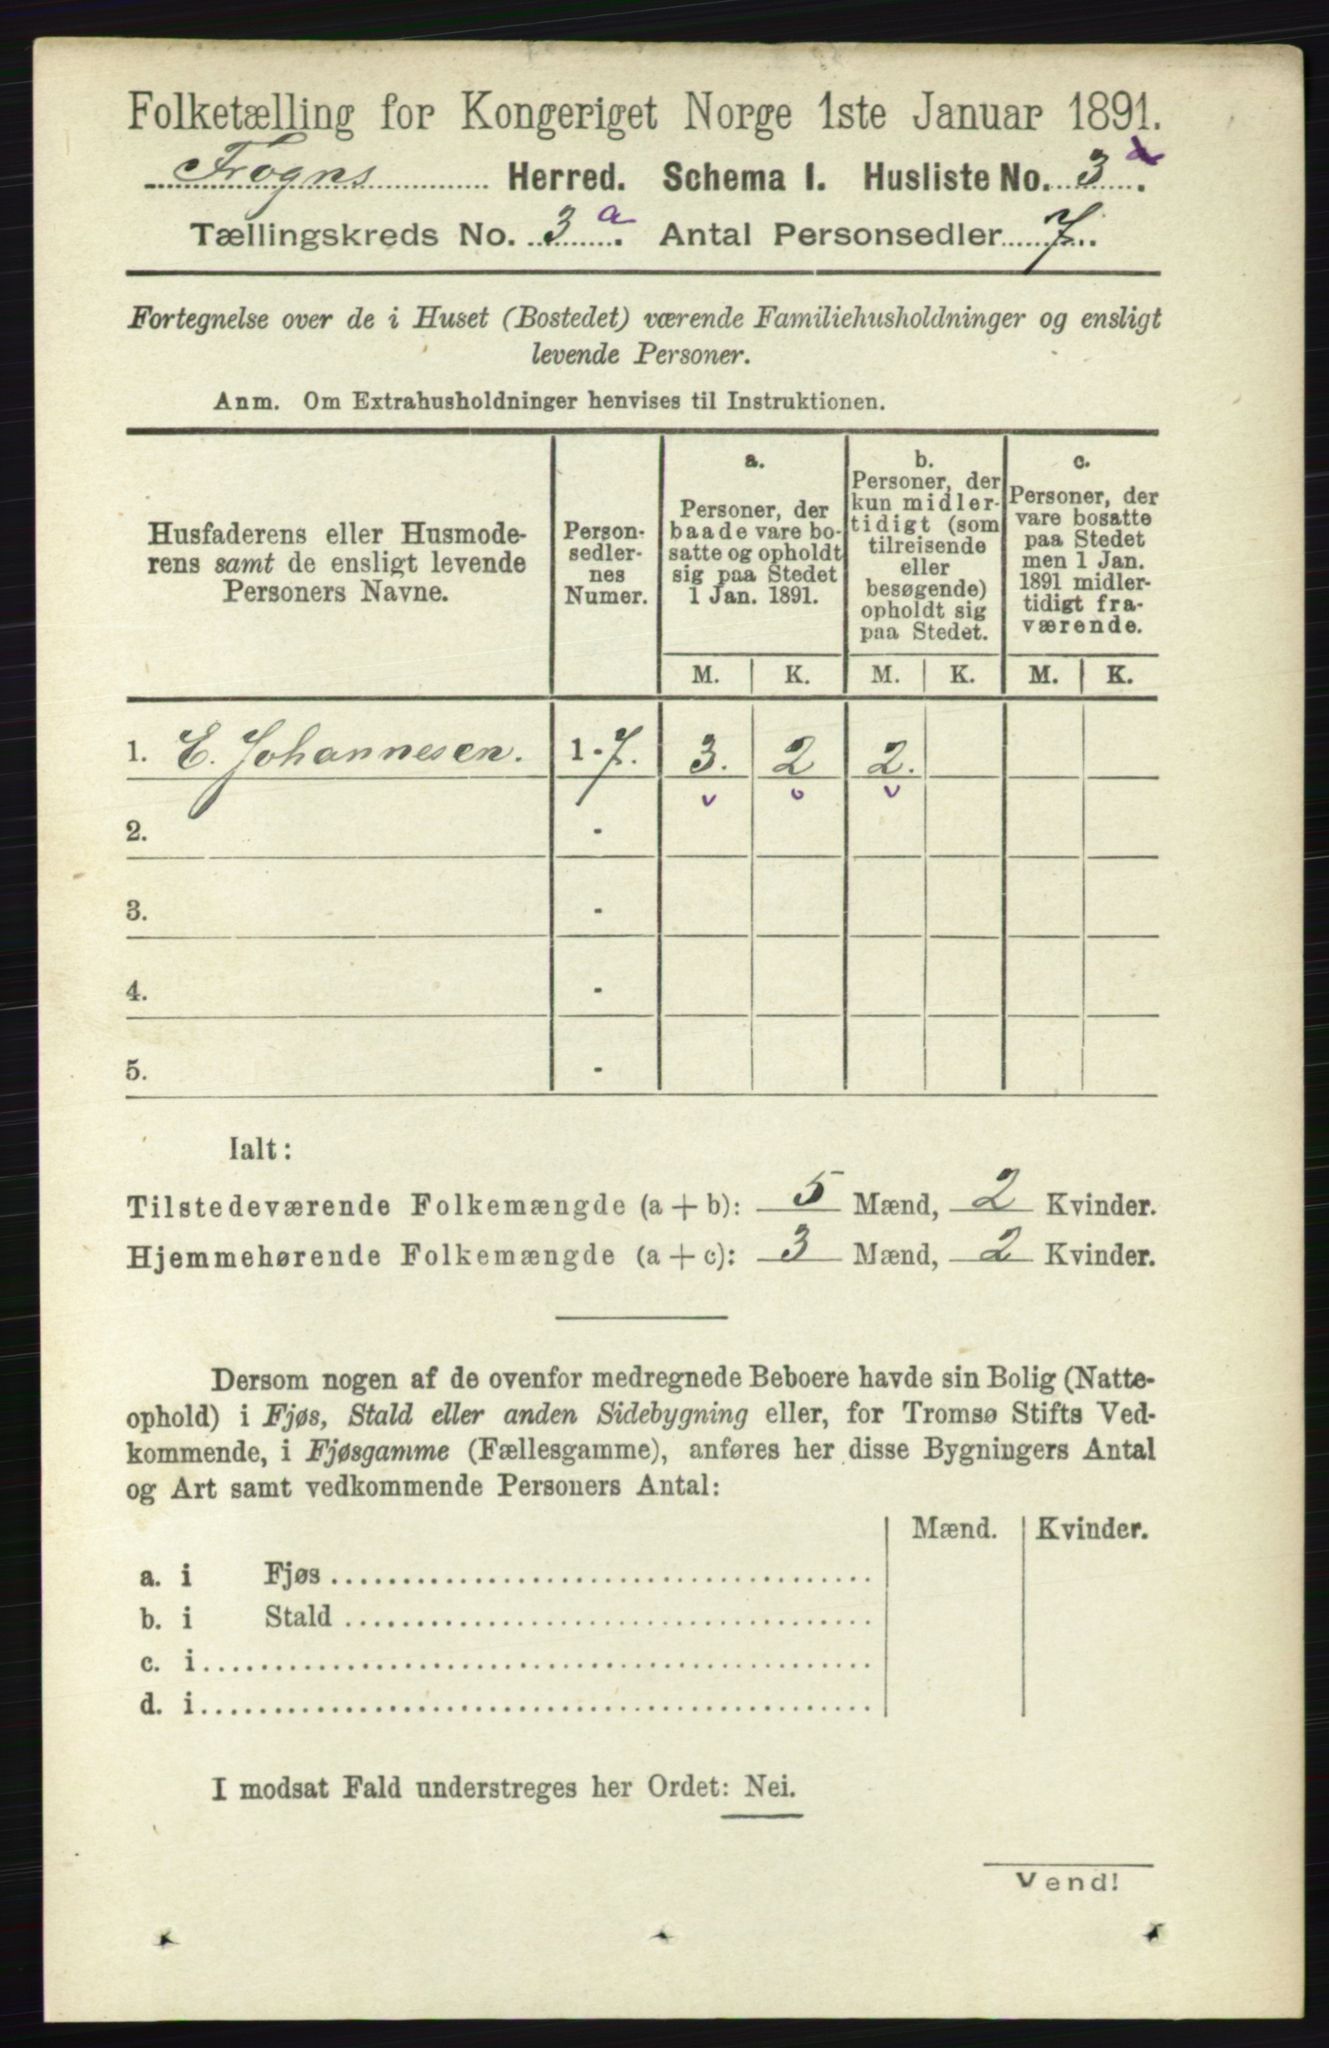 Folketælling for Kongeriget Norge 1ste Januar 1891.
Frogns Herred. Schema I. Husliste No. 3.
Tællingskreds No. 3a. Antal Personsedler 7.
Fortegnelse over de i Huset (Bostedet) værende Familiehusholdninger og ensligt
levende Personer.
Anm. Om Extrahusholdninger henvises til Instruktionen.
Husfaderens eller Husmode-
rens samt de ensligt levende
Personers Navne.
Person-
sedler-
nes
Numer.
a.
Personer, der
baade vare bo-
satte og opholdt
sig paa Stedet
1 Jan. 1891.
b.
Personer, der
kun midler-
tidigt (som
tilreisende
eller
besøgende)
opholdt sig
paa Stedet.
c.
Personer, der
vare bosatte
paa Stedet
men 1 Jan.
1891 midler-
tidigt fra-
værende.
M. K. M. K. M. K.
1. E. Johannesen. 1-7. 3. 2 2.
2. -
3. -
4. -
5. -
Ialt:
Tilstedeværende Folkemængde (a + b): 5 Mænd, 2 Kvinder.
Hjemmehørende Folkemængde (a + c): 3 Mænd, 2 Kvinder.
Dersom nogen af de ovenfor medregnede Beboere havde sin Bolig (Natte-
ophold) i Fjøs, Stald eller anden Sidebygning eller, for Tromsø Stifts Ved-
kommende, i Fjøsgamme (Fællesgamme), anføres her disse Bygningers Antal
og Art samt vedkommende Personers Antal:
Mænd. Kvinder.
a. i Fjøs
b. i Stald
c. i
d. i
I modsat Fald understreges her Ordet: Nei.
Vend!